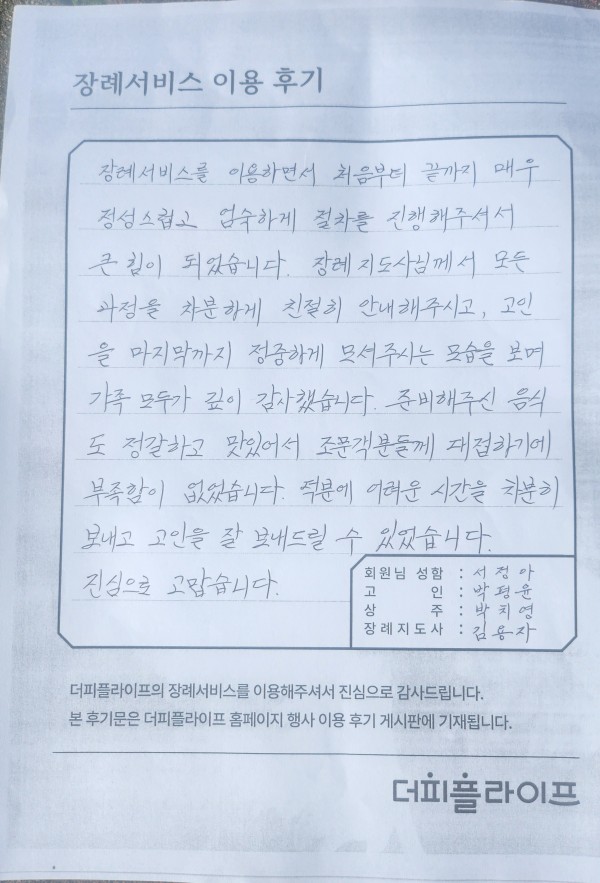 장례서비스 이용 후기
장례서비스를 이용하면서 처음부터 끝까지 매우
정성스럽고 엄숙하게 절차를 진행해주셔서
큰 힘이 되었습니다. 장례지도사님께서 모든
과정을 차분하게 친절히 안내해주시고, 고인
을 마지막까지 정중하게 모셔주시는 모습을 보며
가족 모두가 깊이 감사했습니다. 준비해주신 음식
도 정갈하고 맛있어서 조문객분들께 대접하기에
부족함이 없었습니다. 덕분에 어려운 시간을 차분히
보내고 고인을 잘 보내드릴 수 있었습니다.
진심으로 고맙습니다.
회원님 성함 : 서정아
고 인 : 박평윤
상 주 : 박지영
장례지도사 : 김용자
더피플라이프의 장례서비스를 이용해주셔서 진심으로 감사드립니다.
본 후기문은 더피플라이프 홈페이지 행사 이용 후기 게시판에 기재됩니다.
더피플라이프